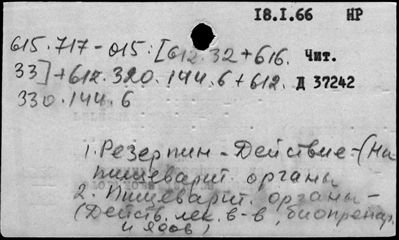 18.I.66 НР
615.717-015:[612.32+616.
Чит.
33]+612.320.144.6+612.
Д 37242
330.144.6
1. Резерпин - Действие - (на
пищеварит. органы
2. Пищеварит. органы -
(Действ. лек. в-в, биопрепар.
и ядов)